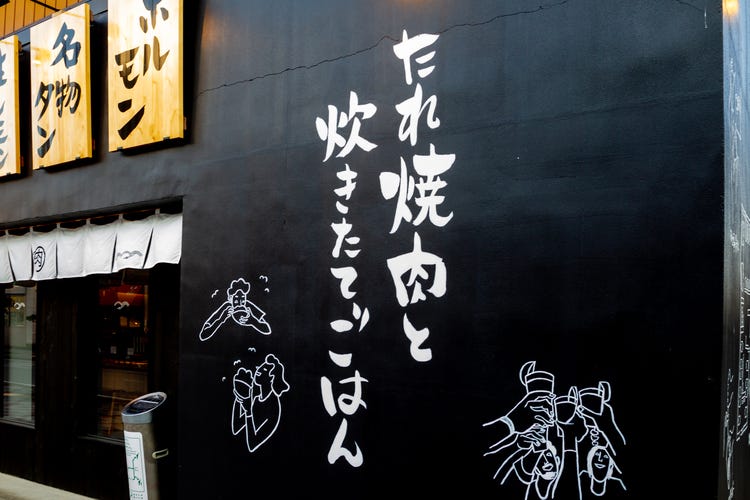 たれ焼肉と
炊きたてごはん
ホルモン
名物
タン
肉